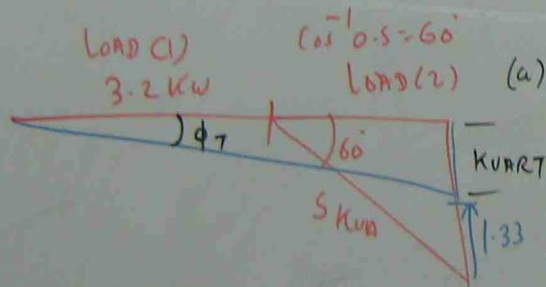 LOAD (1)
3.2 KW
Cos⁻¹ 0.5 = 60°
LOAD (2)
(a)
ϕT
60°
KVART
S KVA
1.33